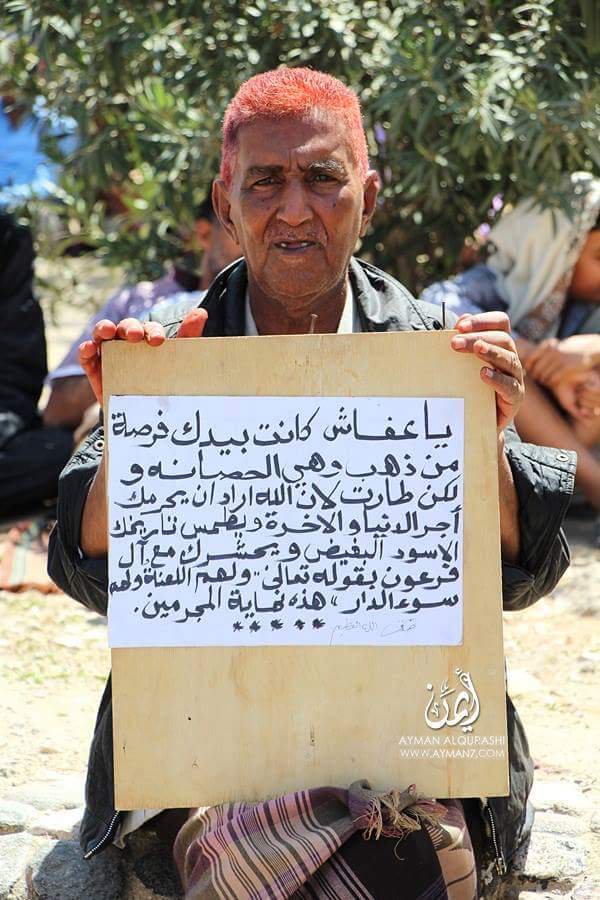 يا عفاش كانت بيدك فرصة
من ذهب وهي الحصانه و
لكن طارت لان الله اراد ان يحرمك
أجر الدنيا والآخرة ويطمس تاريخك
الاسود البغيض ويحشرك مع آل
فرعون بقوله تعالى "ولهم اللعنة ولهم
سوء الدار" هذه نهاية المجرمين.
الله العظيم
أيمن
AYMAN ALQURASHI
WWW.AYMAN7.COM